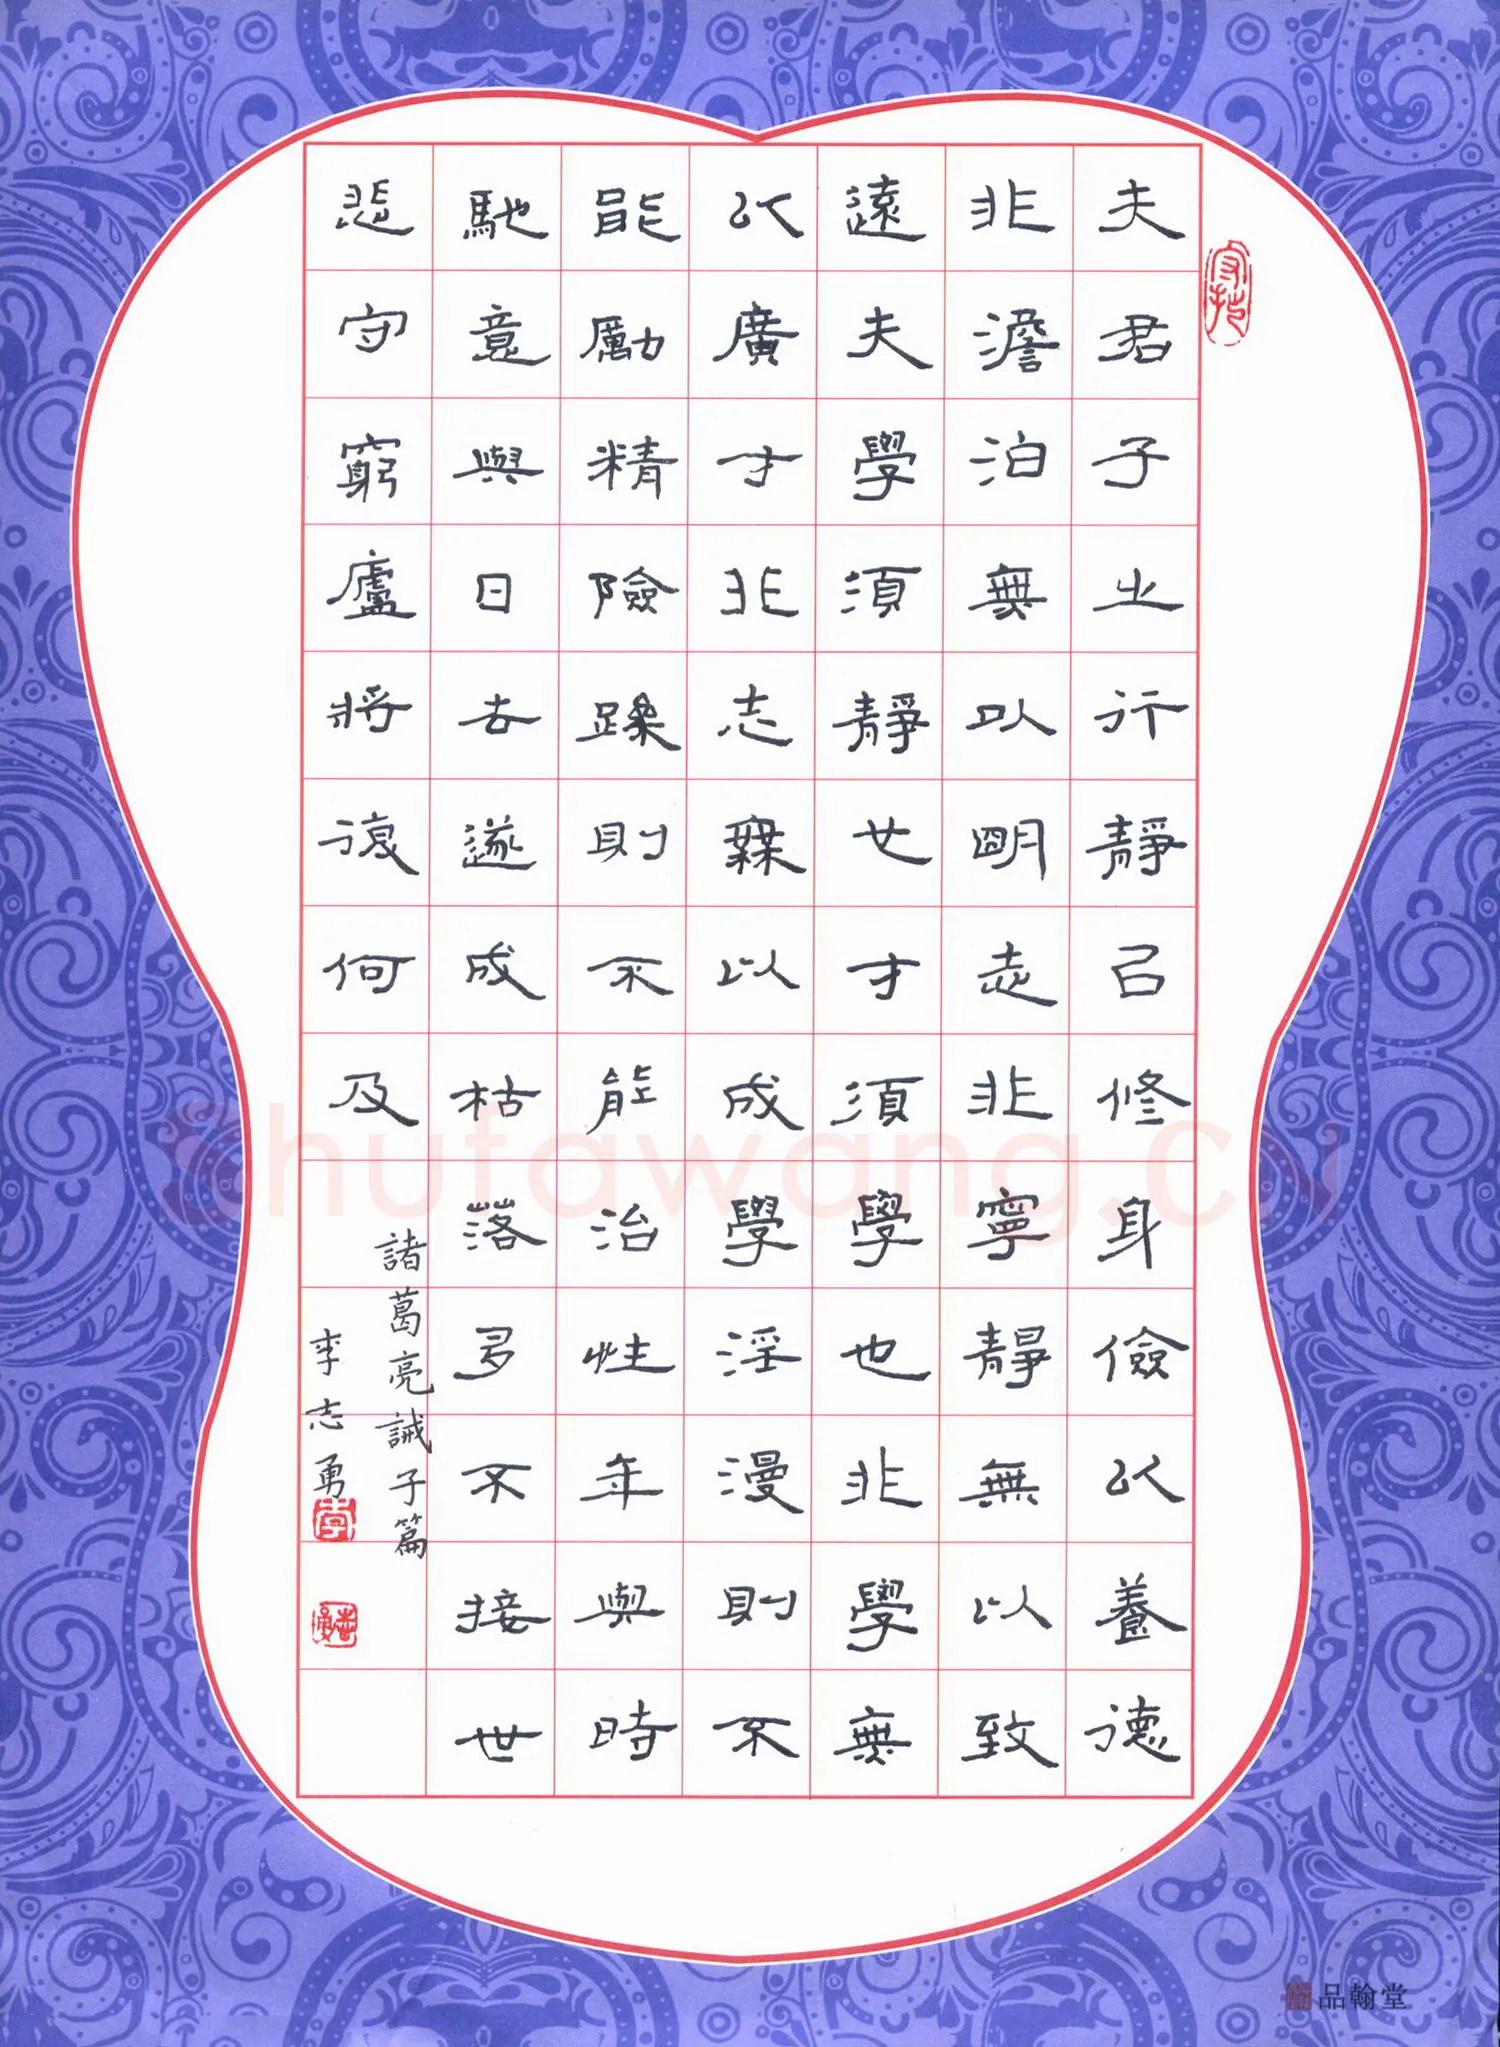 夫君子之行靜㠯修身儉以養德
非澹泊無以明志非寧靜無以致
遠夫學須靜也才須學也非學無
以廣才非志無以成學淫漫則不
能勵精險躁則不能治性年與時
馳意與日去遂成枯落多不接世
悲守窮廬將復何及
諸葛亮誡子篇
李志勇
李
志勇
品翰堂
Shufawang.CN